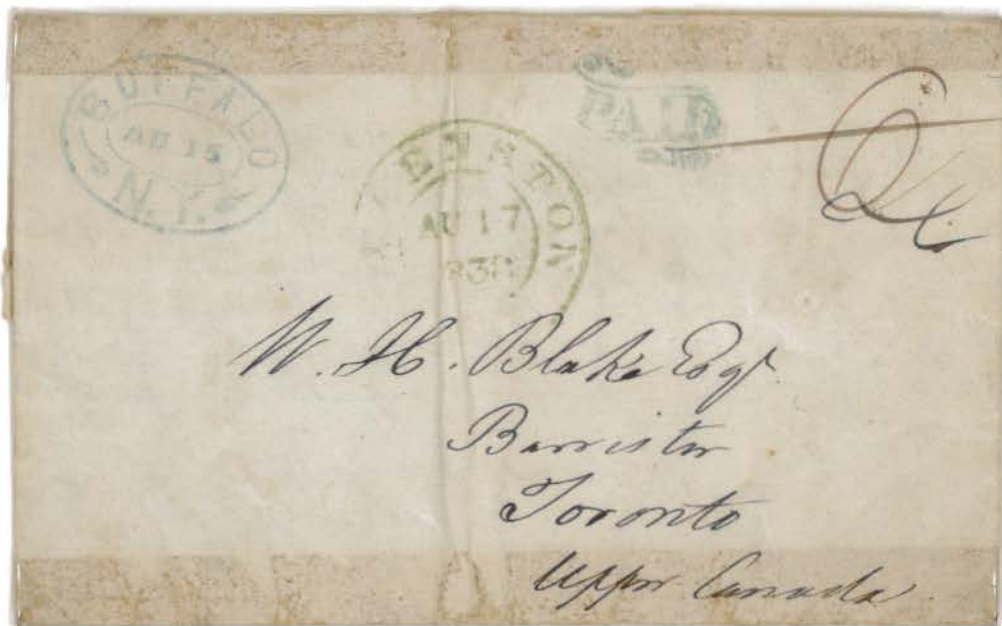 BUFFALO
AU 15
N.Y.
PAID
AU 17
W. H. Blake Esqr.
Barrister
Toronto
Upper Canada